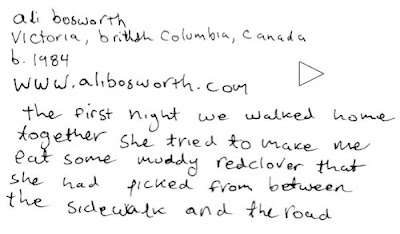 ali bosworth
Victoria, british Columbia, Canada
b. 1984
www.alibosworth.com
the first night we walked home
together she tried to make me
eat some muddy redclover that
she had picked from between
the sidewalk and the road